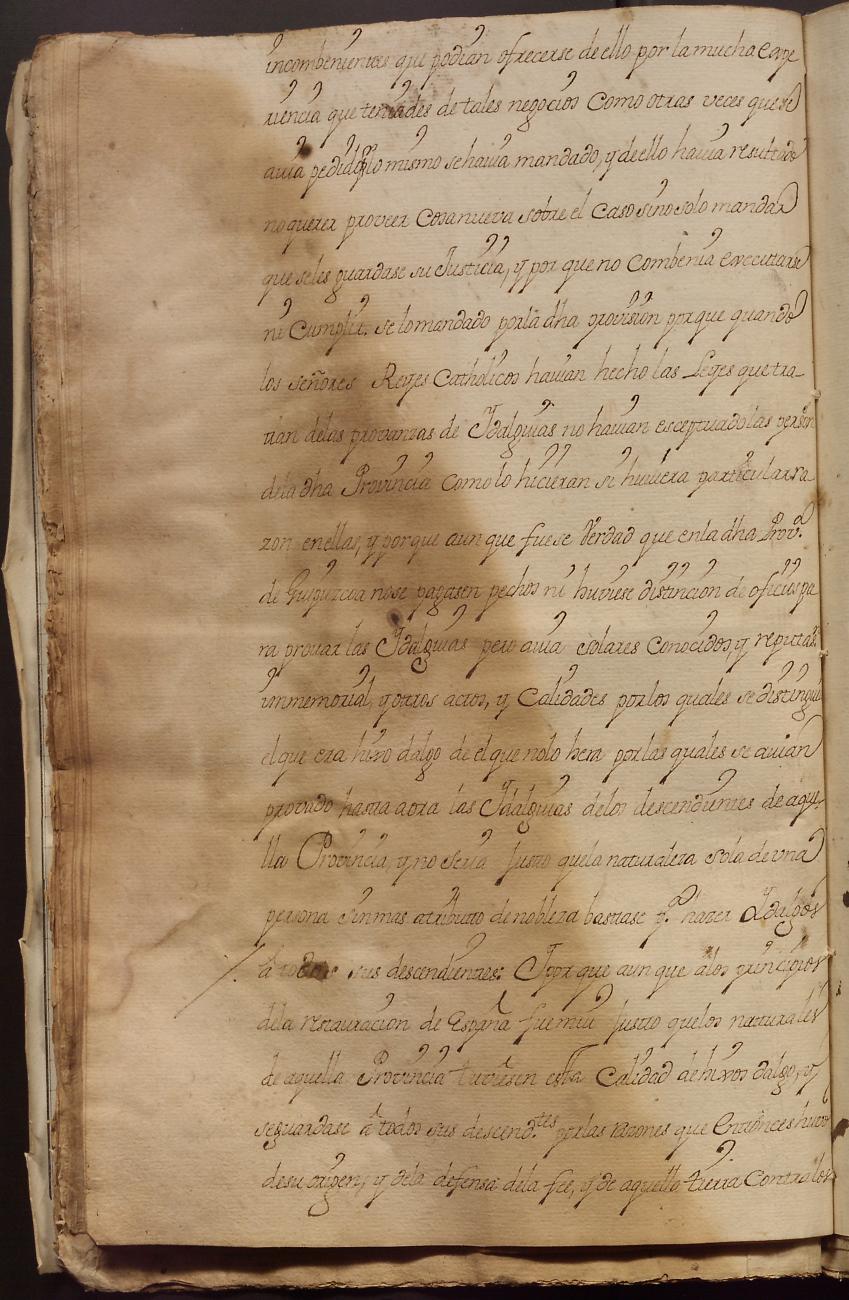 incombenientes que podian ofrecerse de ello por la mucha Espe
riencia que teniades de tales negocios Como otras veces que se
avia pedido lo mismo se havia mandado, y de ello havia resultado
no querer proveer Cosa nueva sobre el Caso sino solo mandar
que se les guardase su Justicia, y por que no Combenia executarse
ni Cumplir se lo mandado por la dha provision porque quando
los señores Reyes Catholicos havian hecho las Leyes que tra-
tan de las provanzas de Idalguias no havian esceptuado las
de la dha Provincia como lo hicieran si huviera particular ra
zon en ellas, y porque aun que fuese Verdad que en la dha Prov.ª
de Guipuzcoa no se pagasen pechos ni huviese distincion de oficios pa
ra provar las Idalguias pero avia solares Conocidos, y reputaz.
immemorial, y otros actos, y Calidades por los quales se distingui
el que era hixo dalgo de el que no lo hera por las quales se avian
provado hasta aora las Idalguias de los descendientes de aque
lla Provincia, y no seria Justo que la naturaleza sola de una
persona sin mas atributo de nobleza bastase p.ª hacer Idalgos
à todos sus descendientes: I por que aun que a los principios
de la restauracion de España fue mui Justo que los naturales
de aquella Provincia tuviesen esta Calidad de hixos dalgo, y
se guardase à todos sus descend.tes por las razones que Entonces huvo
de su origen, y de la defensa de la fee, y de aquella tierra Contra los